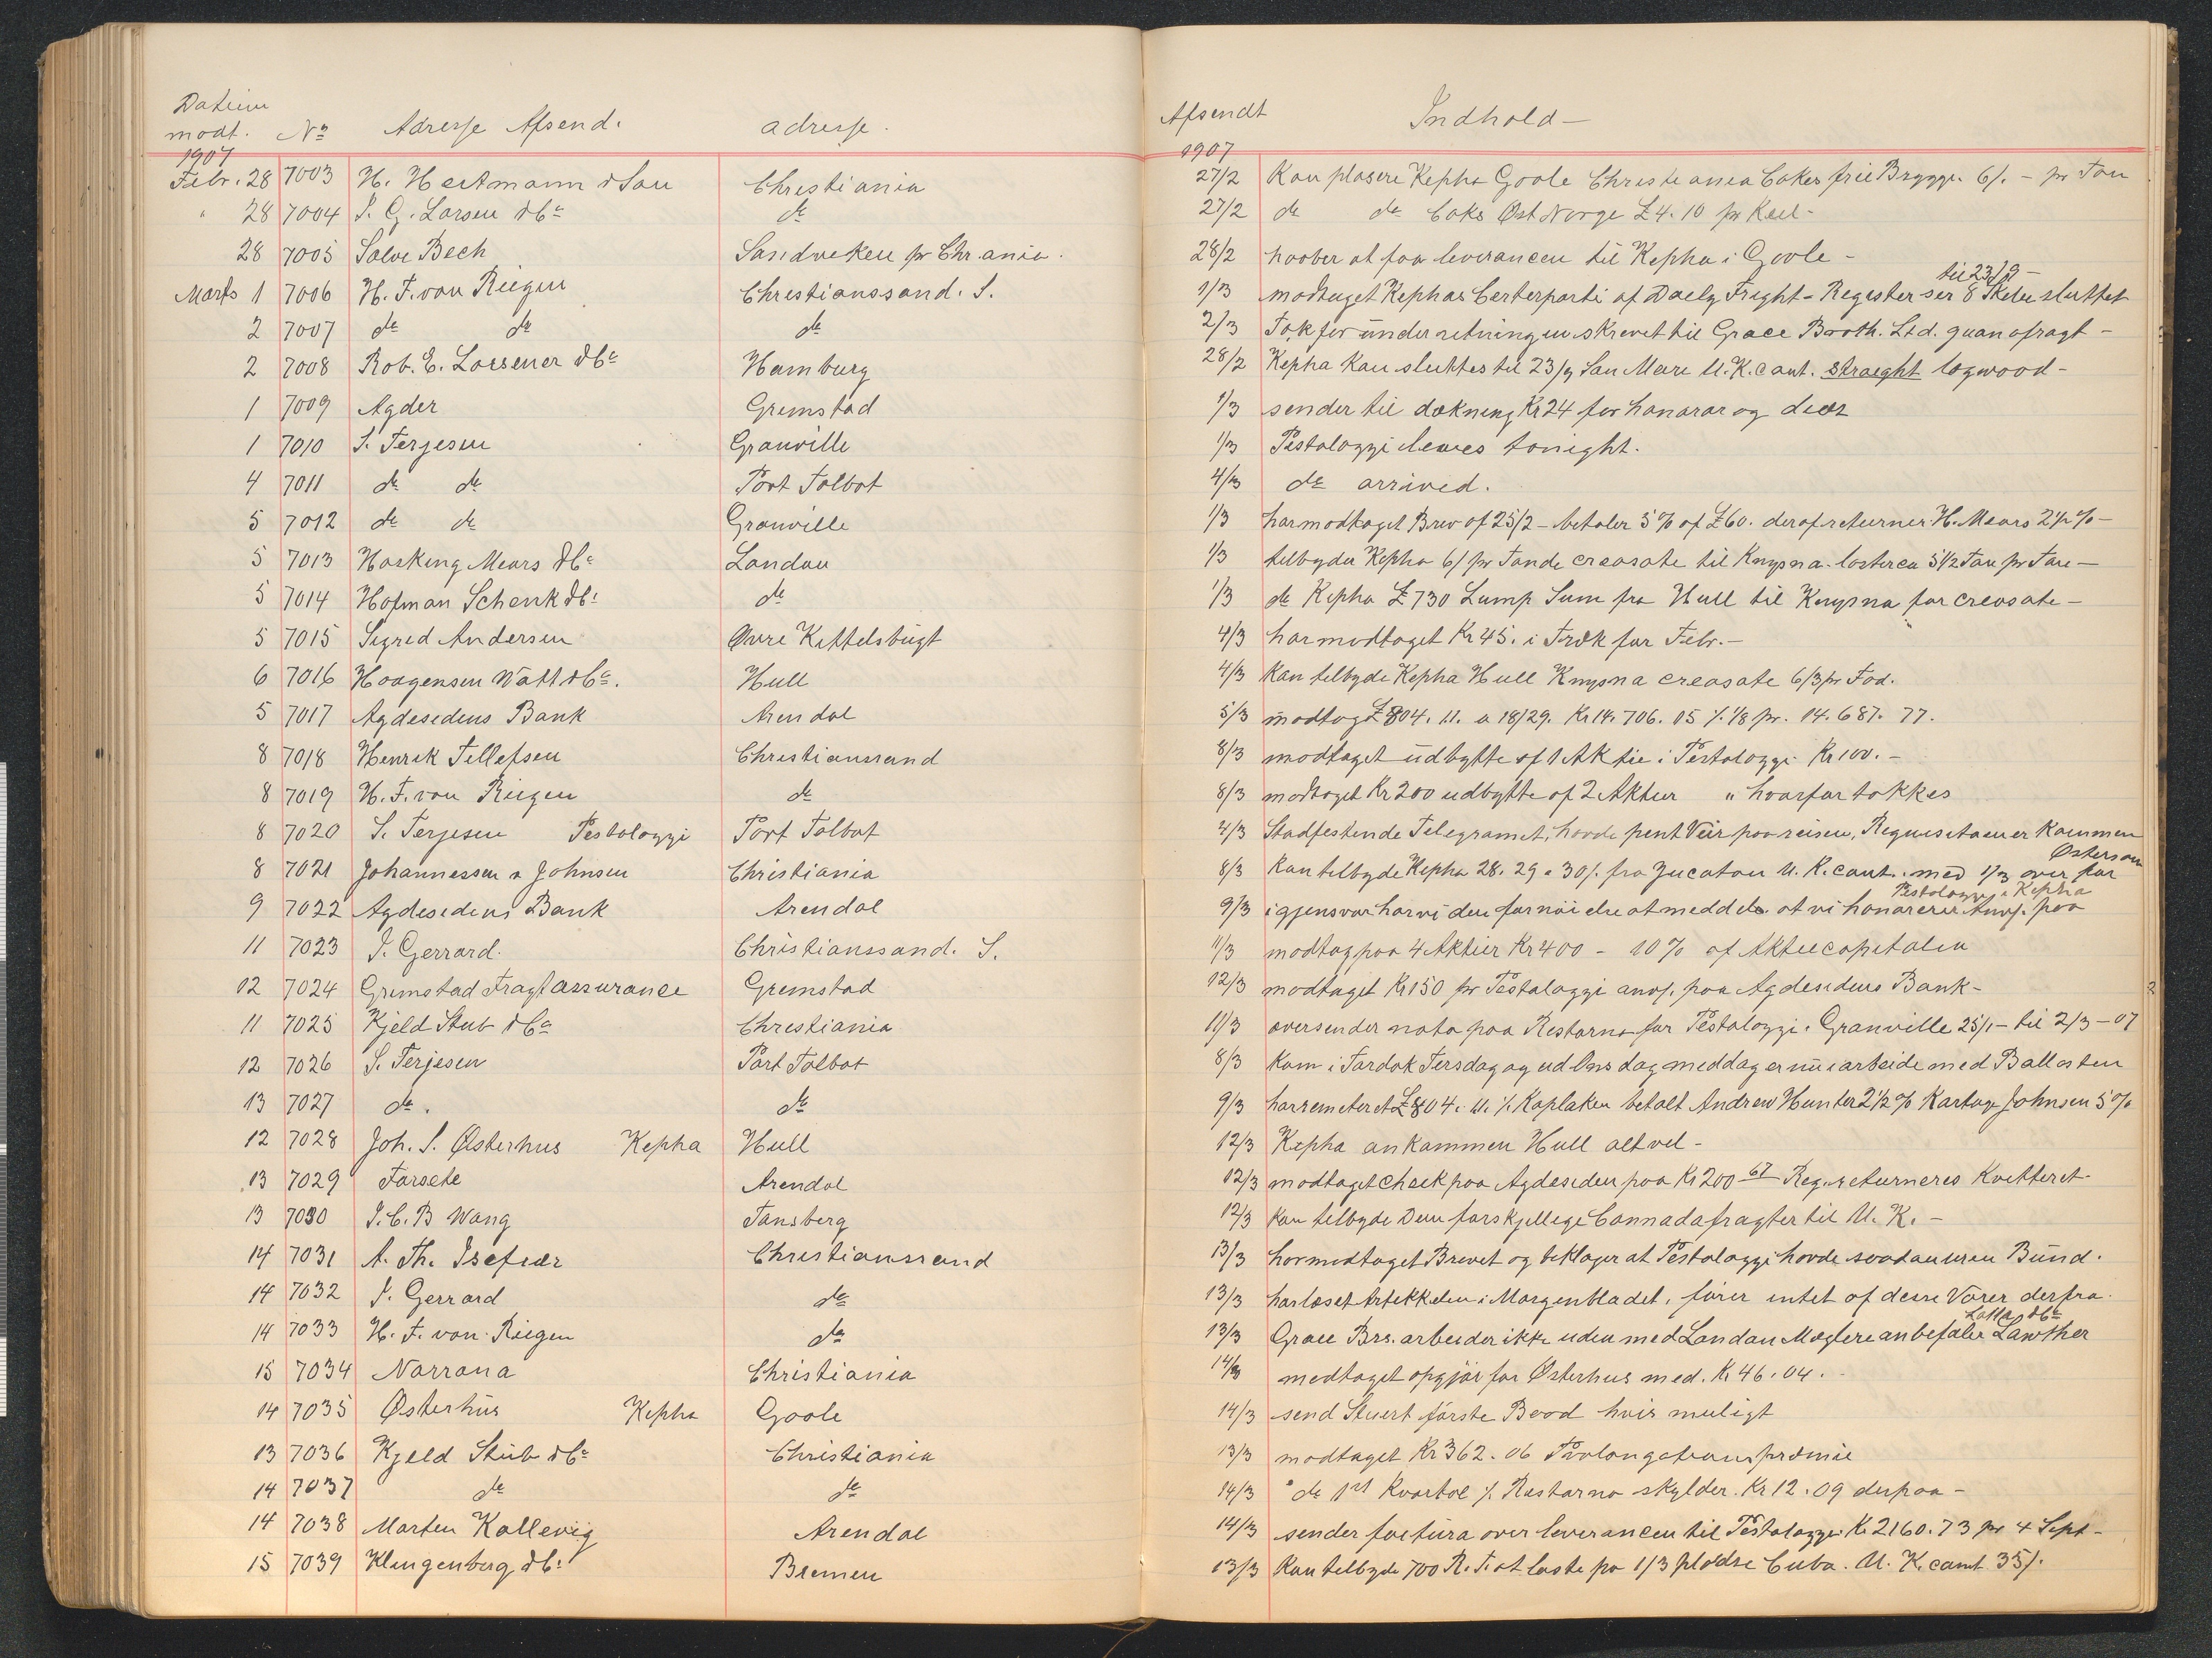 Datum
modt. No Adresse Afsend. adresse. Afsendt Indhold—
1907 1907
Febr. 28 7003 H. Heitmann & Søn Christiania 27/2 Kan plasere Kepha Goole Christiania Cokes frie Brygge 6/. – pr Ton
" 28 7004 J. G. Larsen & Co do 27/2 do do Coks Øst Norge £4.10 pr Keel -
28 7005 Salve Bech Sandviken pr Chr.ania. 28/2 haaber at faa leverancen til Kepha i Goole -
til 23/9 –
Marts 1 7006 H. F. von Riegen Christianssand. S. 1/3 modtaget Kephas Certerparti af Daely Fright-Register ser 8 Skebe sluttet
2 7007 do do do 2/3 Tak for underretningen skrevet til Grace Broth. Ltd. quanofragt -
2 7008 Rob. E. Loesener & Co Hamburg 28/2 Kepha Kan sluttes til 23/9 San Marc U.K. cont. straeght logwood -
1 7009 Agder Grimstad 1/3 sender til dækning Kr 24 for honorar og diæt
1 7010 S. Terjesen Granville 1/3 Pestalozzi leaves tonight.
4 7011 do do Port Talbot 4/3 do arrived.
5 7012 do do Granville 1/3 har modtaget Brev af 25/2 – betaler 5% af £60. deraf returner H. Mears 2½% –
5 7013 Hosking Mears & Co London 1/3 tilbyder Kepha 6/ pr Tønde creosote til Knysna - laster ca 5½ Tøn pr Ton –
5 7014 Hofman Schenk & Co do 1/3 do Kepha £730 Lump Sum fra Hull til Knysna for creosote –
5 7015 Sigrid Andersen Øvre Kittelsbugt 4/3 har modtaget Kr 45. i Træk for Febr. –
6 7016 Haagensen Watt & Co. Hull 4/3 Kan tilbyde Kepha Hull Knysna creosote 6/3 pr Fad.
5 7017 Agdesidens Bank Arendal 5/3 modtag £804. 11. a 18/29. Kr 14.706. 05 %. 1/8 pr. 14.687. 77.
8 7018 Henrik Tellefsen Christianssand 8/3 modtaget udbytte af 1 Aktie i Pestalozzi Kr 100. –
8 7019 H. F. von Riegen do 8/3 modtaget Kr 200 udbytte af 2 Aktier " hvorfor takkes
8 7020 S. Terjesen Pestalozzi Port Talbot 4/3 Stadfestende Telegramet, havde pent Veir paa reisen, Requisitaen er Kommen
8 7021 Johannessen & Johnsen Christiania 8/3 Kan tilbyde Kepha 28. 29 a 30/. fra Yucatan U.K. cont. med 1/3 over for
Østersøen
Pestalozzi & Kepha
9 7022 Agdesidens Bank Arendal 9/3 i gjensvar har vi den fornøielse at meddele at vi honorerer Anvf. paa
11 7023 J. Gerrard. Christianssand. S. 11/3 modtag paa 4 Aktier Kr 400 – 10% af Aktiecapitalen
12 7024 Grimstad Fragtassurance Grimstad 12/3 modtaget Kr 150 pr Pestalozzi anvf. paa Agdesidens Bank -
11 7025 Kjeld Stub & Co Christiania 11/3 oversender nota paa Restarno for Pestalozzi. Granville 25/1 – til 2/3 – 07
12 7026 S. Terjesen Port Talbot 8/3 Kom i Tørdok Tirsdag og ud Onsdag meddag er nu i arbeide med Ballasten
13 7027 do. do 9/3 har remiteret £804. 11. %. Kaplaken betalt Andrew Hunter 2½% Kartage Johnsen 5%
12 7028 Joh. S. Østerhus Kepha Hull 12/3 Kepha ankommen Hull alt vel -
13 7029 Farsete Arendal 12/3 modtaget check paa Agdesiden paa Kr 200 67 Reg. returneres Kvitteret -
13 7030 J. C. B Wang Tønsberg 12/3 Kan tilbyde Dem forskjellige Cannadafragter til U.K. –
14 7031 A. Th. Isefiær Christianssand 13/3 har modtaget Brevet og beklager at Pestalozzi havde saadan uren Bund.
14 7032 J. Gerrard do 13/3 har læset Artekkelen i Morgenbladet, fører intet af desse Varer derfra.
Lotta & Co
14 7033 H. F. von Riegen do 13/3 Grace Brs. arbeider ikke uden med London Mæglere anbefaler Lawther
15 7034 Norrøna Christiania 14/3 modtaget opgjør for Østerhus med. Kr 46. 04.
14 7035 Østerhus Kepha Goole 14/3 send Stuert første Baad hvis muligt
13 7036 Kjeld Stub & Co Christiania 13/3 modtaget Kr 362. 06 Prolongations præmie
14 7037 do do 14/3 " do 1st Kvartal %. Restarno skylder. Kr 12. 09 derpaa –
14 7038 Morten Kallevig Arendal 14/3 sender factura over leverancen til Pestalozzi Kr 2160. 73 pr 4 Sept -
15 7039 Klingenberg & Co Bremen 13/3 Kan tilbyde 700 R.T. at laste pa 1/3 pladse Cuba. U.K. cont 35/.